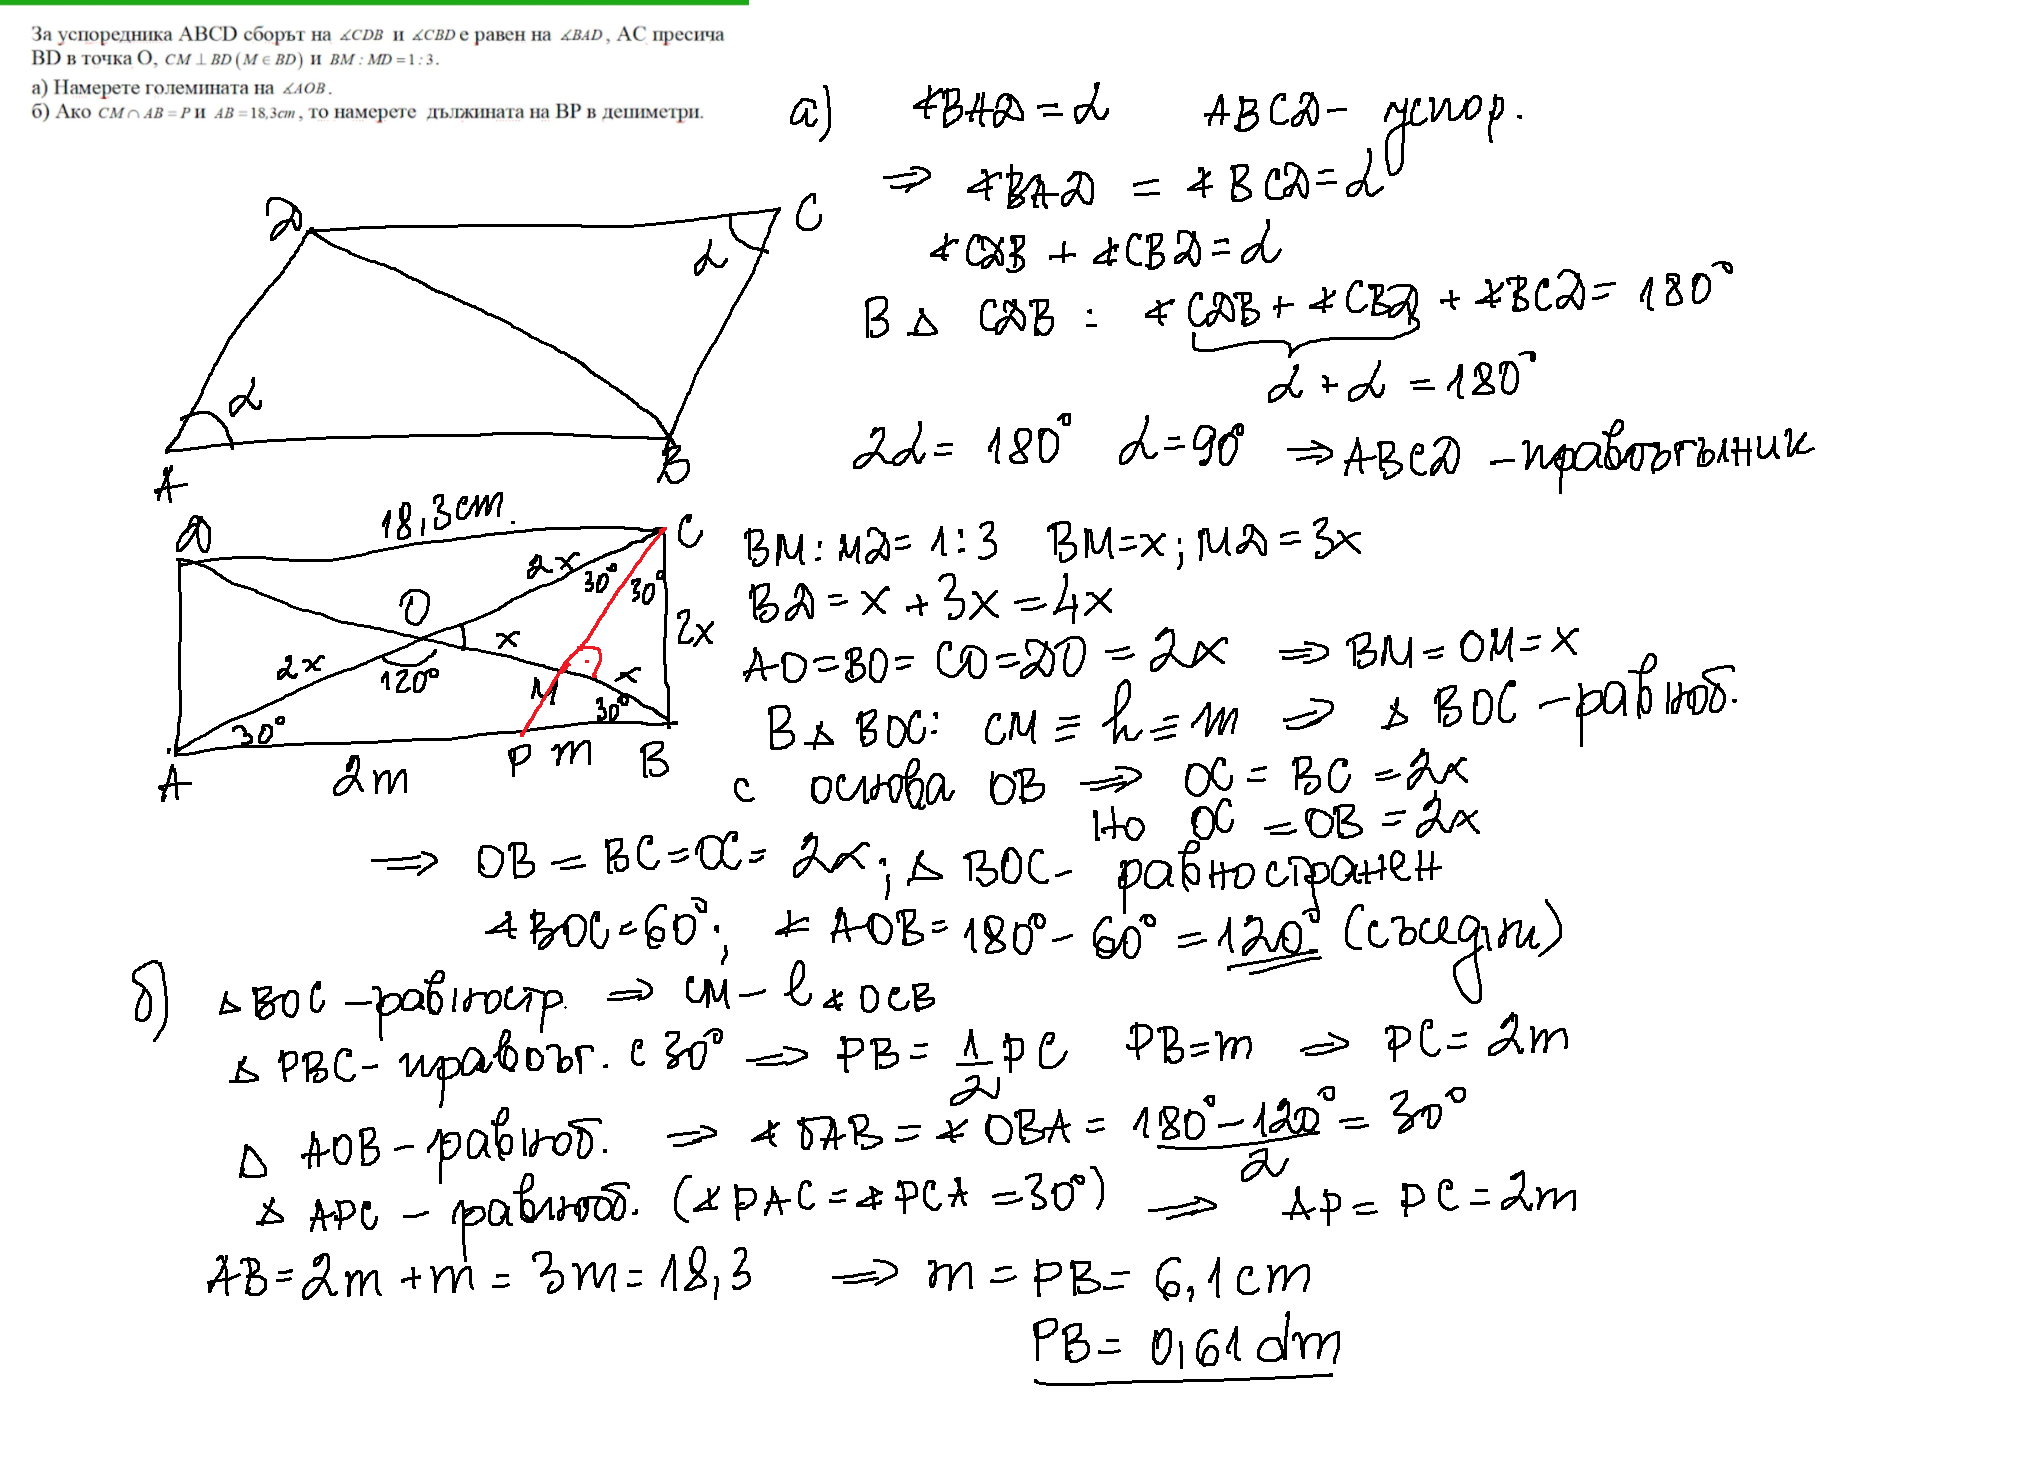 За успоредника ABCD сборът на ∡CDB и ∡CBD е равен на ∡BAD, AC пресича
BD в точка O, CM ⊥ BD (M ∈ BD) и BM : MD = 1 : 3.
а) Намерете големината на ∡AOB.
б) Ако CM ∩ AB = P и AB = 18,3cm, то намерете дължината на BP в дециметри.
а) ∡BAD = α ABCD - успор.
⇒ ∡BAD = ∡BCD = α
∡CDB + ∡CBD = α
В △ CDB : ∡CDB + ∡CBD + ∡BCD = 180°
α + α = 180°
2α = 180° α = 90° ⇒ ABCD - правоъгълник
D C
α
α
A B
18,3cm.
D C
2x 30° 30°
O x 2x
2x 120° M x
30° 30°
A 2m P m B
BM : MD = 1 : 3 BM = x ; MD = 3x
BD = x + 3x = 4x
AO = BO = CO = DO = 2x ⇒ BM = OM = x
В △ BOC: CM ≡ h ≡ m ⇒ △ BOC - равноб.
с основа OB ⇒ OC = BC = 2x
Но OC = OB = 2x
⇒ OB = BC = OC = 2x ; △ BOC - равностранен
∡BOC = 60° ; ∡ AOB = 180° - 60° = 120° (съседни)
б) △ BOC - равностр. ⇒ CM - l ∡ OCB
△ PBC - правоъг. с 30° ⇒ PB = 1/2 PC PB = m ⇒ PC = 2m
△ AOB - равноб. ⇒ ∡ OAB = ∡ OBA = 180° - 120° / 2 = 30°
△ APC - равноб. (∡ PAC = ∡ PCA = 30°) ⇒ AP = PC = 2m
AB = 2m + m = 3m = 18,3 ⇒ m = PB = 6,1 cm
PB = 0,61 dm